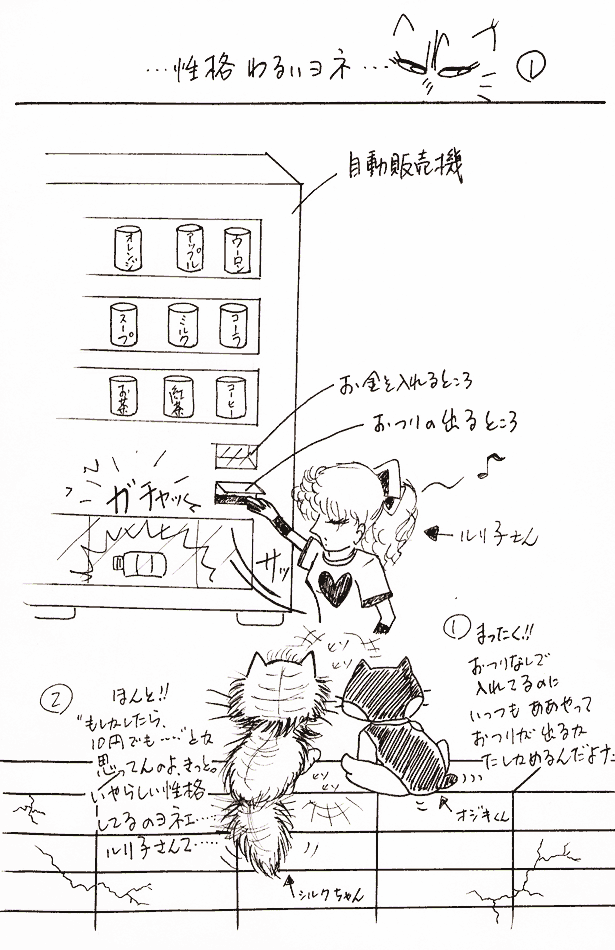 …性格わるいヨネ…
①
自動販売機
オレンジ
アップル
ウーロン
スープ
ミルク
コーラ
お茶
紅茶
コーヒー
お金を入れるところ
おつりの出るところ
ガチャッ
サッ
ルリ子さん
ヒソ
ヒソ
①
まったく!!
おつりなしで
入れてるのに
いっつも ああやって
おつりが出るか
たしかめるんだよナ…
②
ほんと!!
“もしかしたら、
10円でも……”とか
思ってんのよ、きっと。
いやらしい性格
してるのヨネェ……
ルリ子さんて……
ヒソ
ヒソ
オジキくん
シルクちゃん